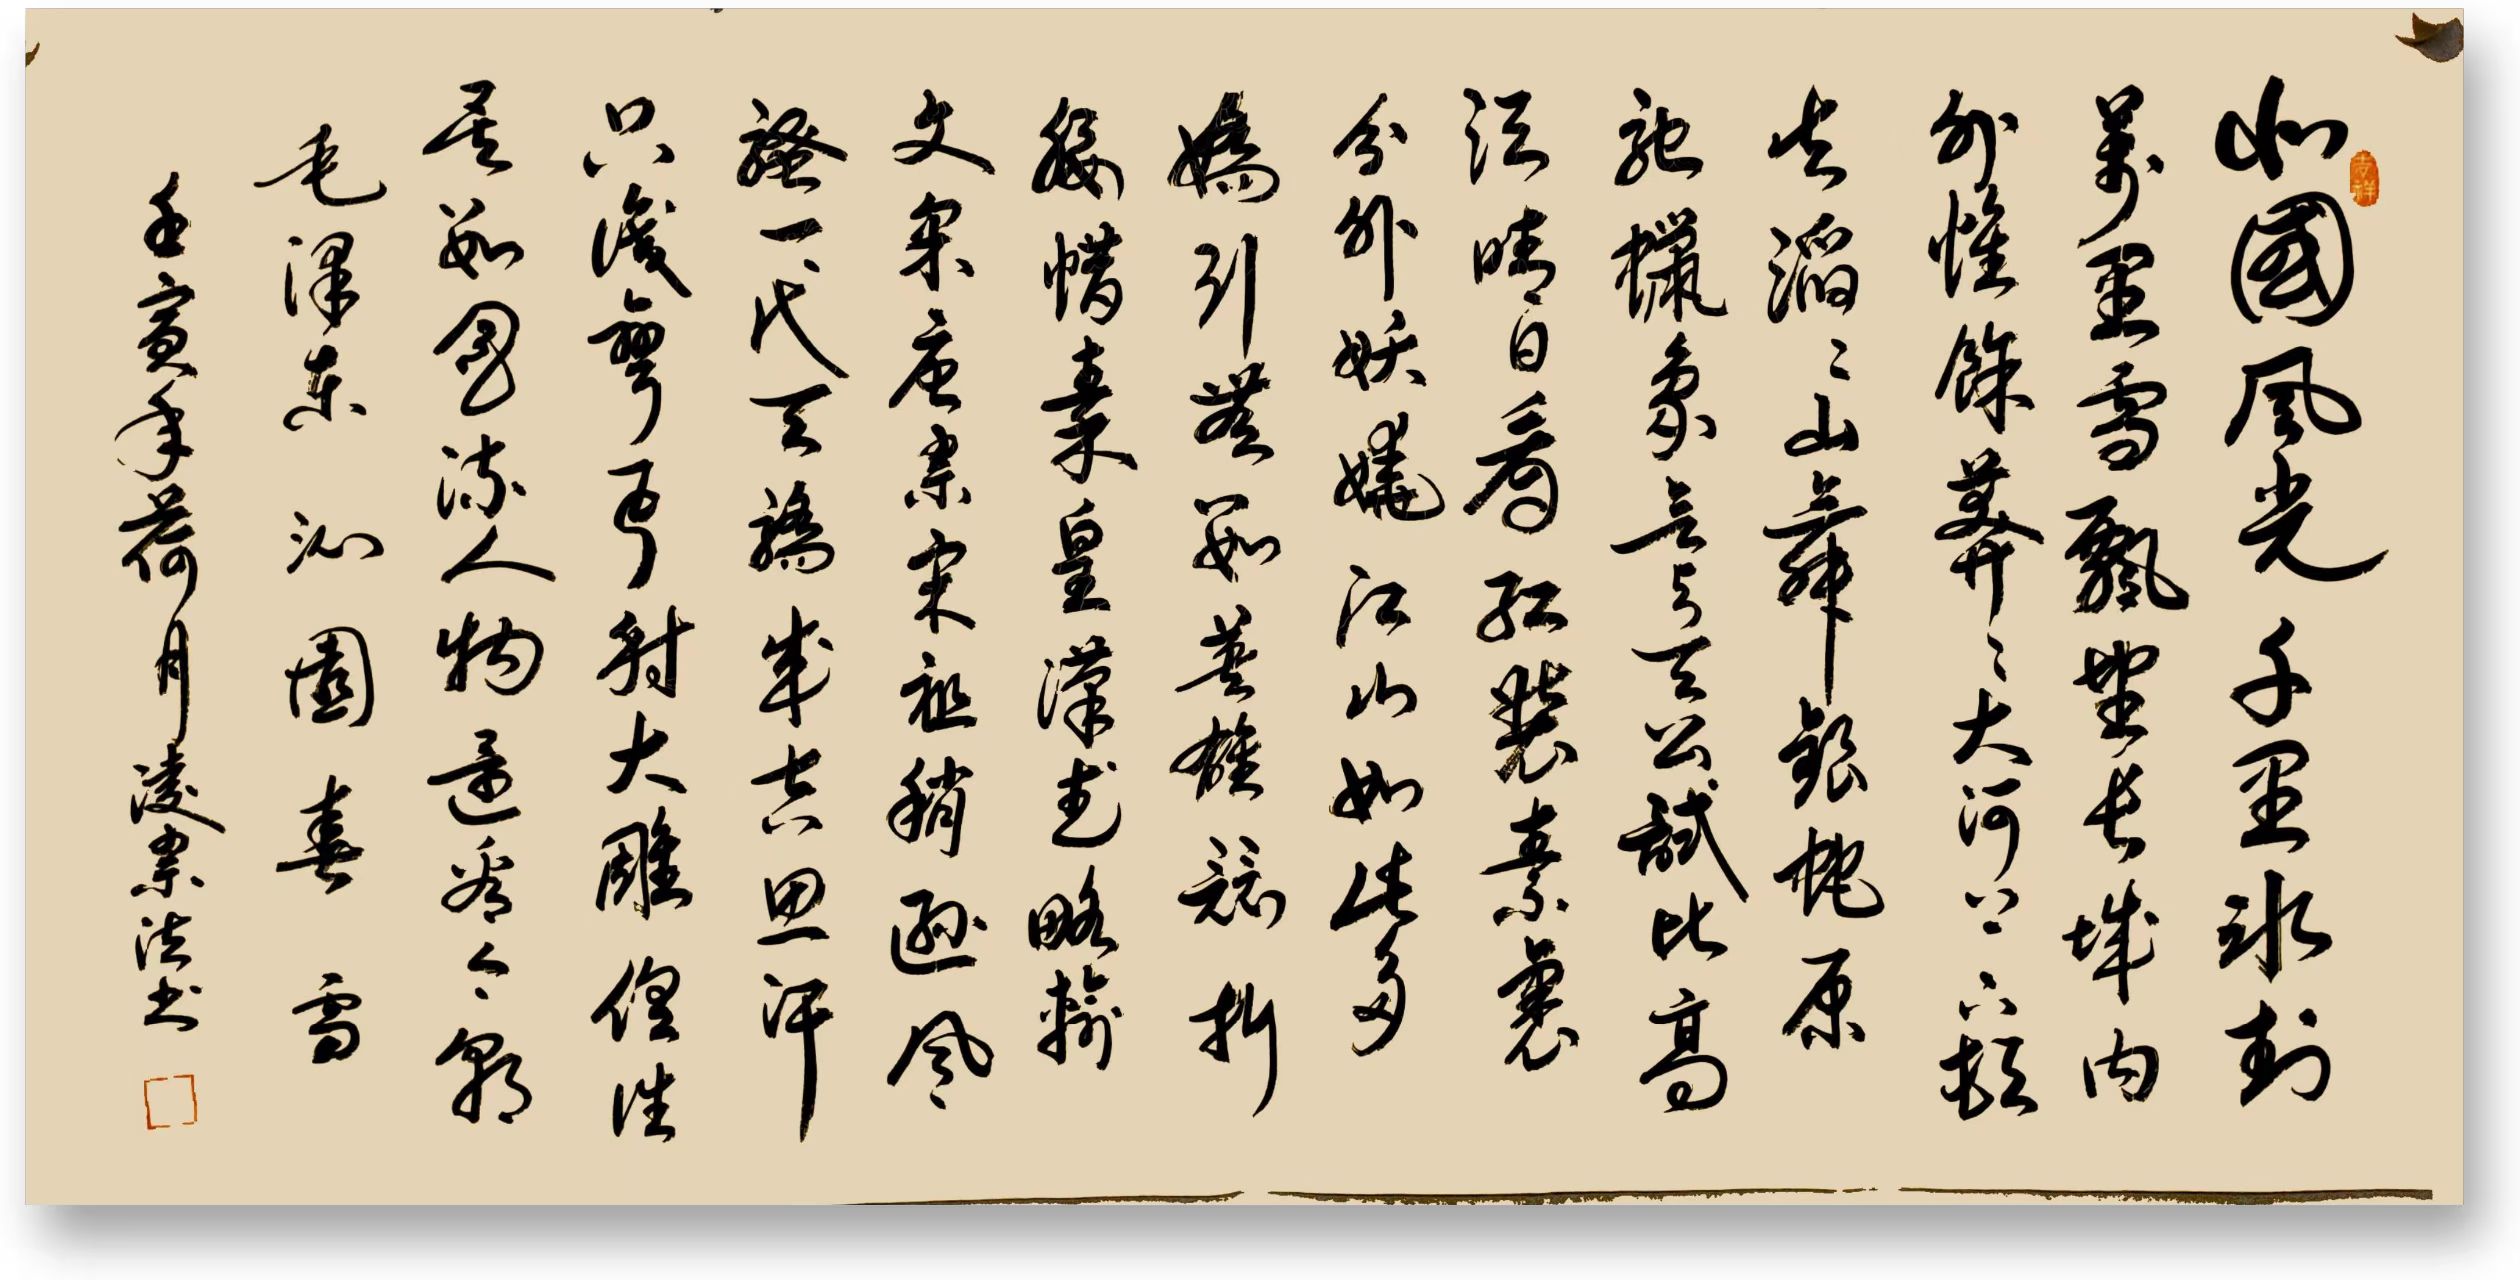 吉祥
北國風光千里冰封
萬里雪飄望長城内
外惟餘莽〻大河上下頓
失滔〻山舞銀蛇原
馳蠟象欲与天公試比高
須晴日看紅裝素裹
分外妖嬈江山如此多
嬌引無數英雄競折
腰惜秦皇漢武略輸
文采唐宗宋祖稍遜風
騷一代天驕成吉思汗
只識彎弓射大雕俱往
矣數風流人物還看今朝
毛澤東 沁園春 雪
壬寅年荷月凌宗法书